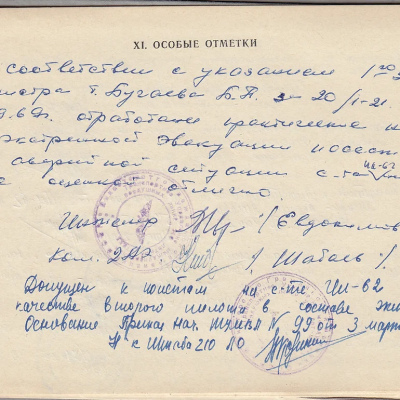 XI. ОСОБЫЕ ОТМЕТКИ
соответствии с указанием 1го
истра т. Бугаева Б.П. за 20/1-21.
отработаны практические
экстренной эвакуации
аварийной ситуации с-та Ил-62
оценка отлично.
Инженер /Евдоким
Ком. 2АЭ / Шабаль /.
Допущен к полетам на с-те Ил-62
качестве второго пилота в составе эки
Основание Приказ нач. N 99 от 3 март
Нс Штаба 210 ЛО